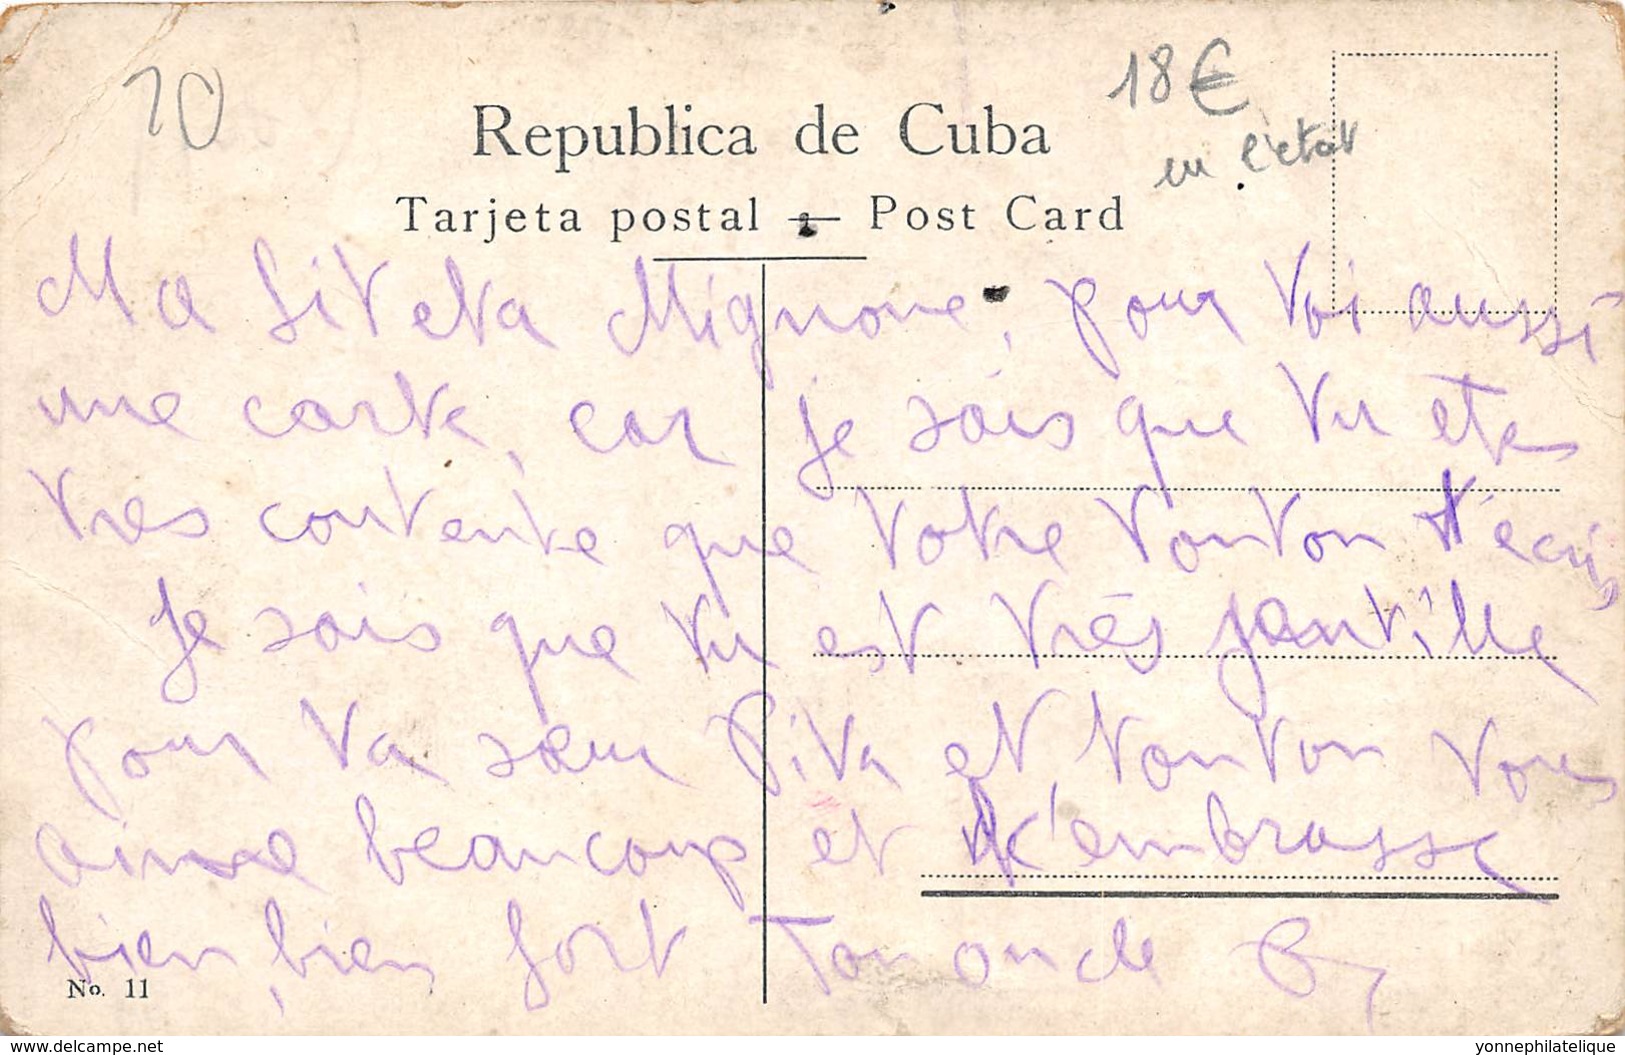 70
18€
en l'état
Republica de Cuba
Tarjeta postal — Post Card
Ma Mignone, pour toi aussi
une carte, car je sais que tu etes
tres contente que votre tonton t'écris
Je sais que tu est très jentille
pour ta sœur Pita et tonton vous
aime beaucoup et t'embrasse
bien, bien fort Ton oncle
No. 11
www.delcampe.net
yonnephilatelique